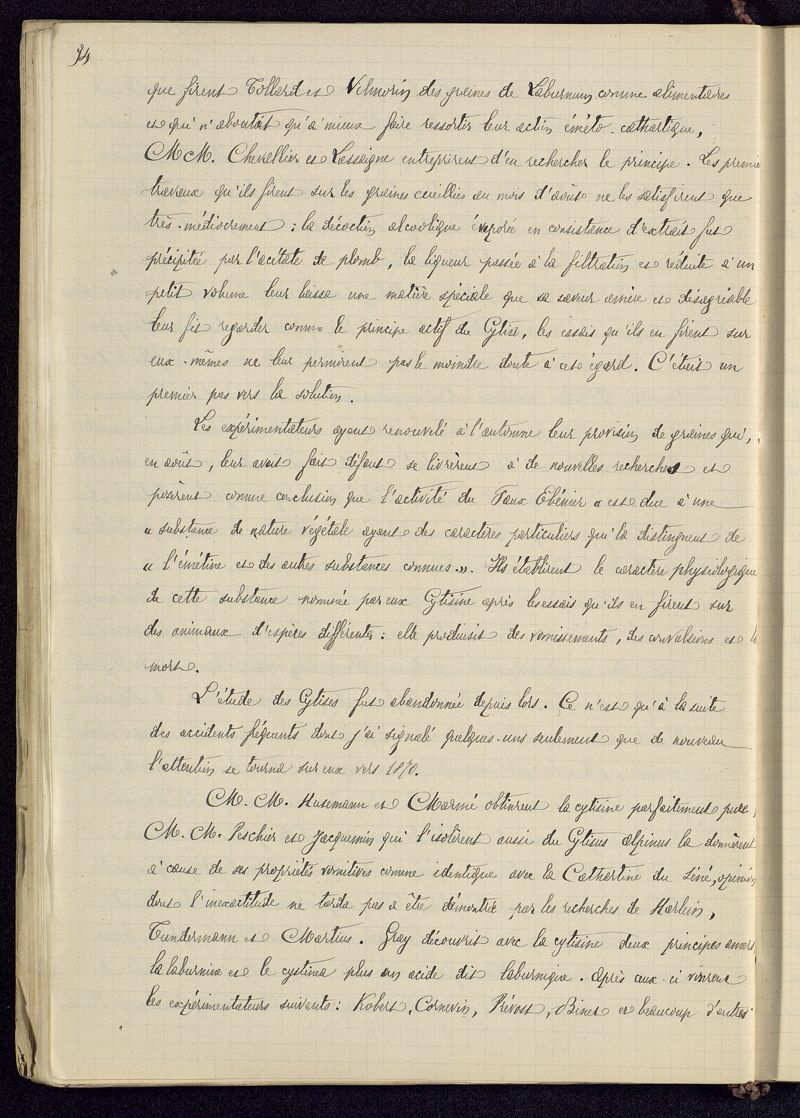 94
que firent Tollard et Vilmorin des graines de Laburnum comme alimentaires
et qui n'aboutit qu'à mieux faire ressortir leur action éméto-cathartique,
MM. Chevallier et Lassaigne entreprirent d'en rechercher le principe. Les premie
travaux qu'ils firent sur les graines cueillies au mois d'août ne les satisfirent que
très-médiocrement : la décoction alcoolique évaporée en consistance d'extrait fut
précipitée par l'acétate de plomb, la liqueur passée à la filtration et réduite à un
petit volume leur laissa une matière spéciale que sa saveur amère et désagréable
leur fit regarder comme le principe actif du Cytise, les essais qu'ils en firent sur
eux-mêmes ne leur permirent pas le moindre doute à cet égard. C'était un
premier pas vers la solution.
Les expérimentateurs ayant renouvelé à l'automne leur provision de graines qui,
en août, leur avait fait défaut se livrèrent à de nouvelles recherches et
posèrent comme conclusion que l'activité du Faux Ebénier « est due à une
« substance de nature végétale ayant des caractères particuliers qui la distinguent de
« l'émétine et des autres substances connues ». Ils établirent le caractère physiologique
de cette substance nommée par eux Cytisine après les essais qu'ils en firent sur
des animaux d'espèces différentes : elle produisit des vomissements, des convulsions et l
mort.
L'étude des Cytises fut abandonnée depuis lors. Ce n'est qu'à la suite
des accidents fréquents dont j'ai signalé quelques-uns seulement que de nouveau
l'attention se tourna sur eux vers 1870.
M. M. Husemann et Marmé obtinrent la cytisine parfaitement pure,
M. M. Peschier et Jacquemin qui l'isolèrent aussi du Cytisus alpinus la donnèrent
à cause de ses propriétés vomitives comme identique avec la Cathartine du Séné, opinion
dont l'inexactitude ne tarda pas à être démontrée par les recherches de Harlein,
Tundermann et Martius. Gray découvrit avec la cytisine deux principes amers
la laburnine et le cystinea plus un acide dit laburnique. Après ceux-ci vinrent
les expérimentateurs suivants : Kobert, Cornevin, Prévost, Binet et beaucoup d'autres